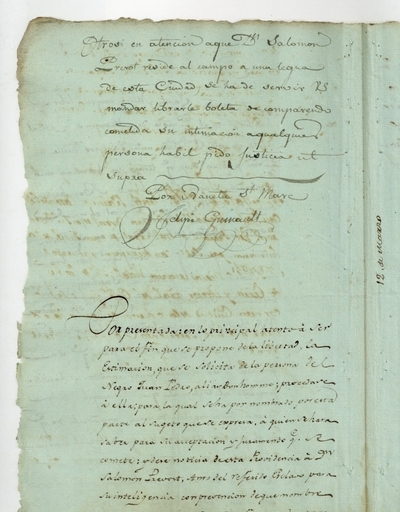 Otrosi en atencion aque Dn Salomon
Prevot reside al campo a una legua
de esta Ciudad, se ha de servir VS
mandar librarle boleta de comparendo
cometida su intimacion a qualquera
persona habil pido Justicia ut
supra
Por Naneta St Marc
Felipe
Por presentada: en lo principal atento à ser
para el fin que se propone de la libertad, la
Estimacion, que se solicita de la persona del
Negro Juan Pedro, alias Bonhomme; procedase
à ella; para la qual se ha por nombrado por esta
parte al sugeto que se expresa, a quien se hara
saber para su aceptacion y juramento q. se
comete: y dese noticia de esta Providencia à Dn
Salomon Prevot, Amo del referido Esclavo para
su inteligencia con prevencion de que nombre
12 de Marzo